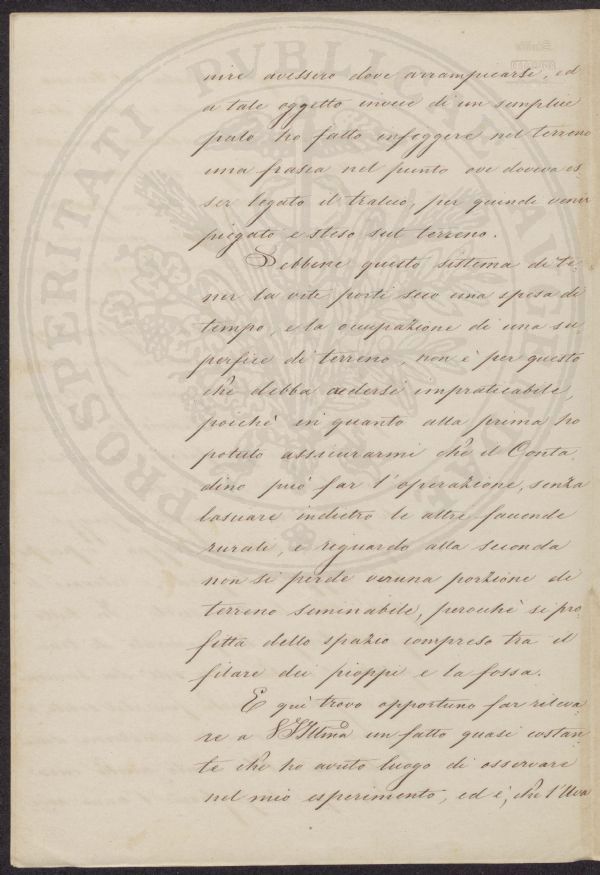 nire avessero dove arrampicarsi, ed
a tale oggetto invece di un semplice
palo ho fatto infeggere nel terreno
una frasca nel punto ove doveva es
ser legato il tralcio, per quindi venir
piegato e steso sul terreno.
Sebbene questo sistema di te-
ner la vite porti seco una spesa di
tempo, e la occupazione di una su
perfice di terreno, non è per questo
che debba credersi impraticabile,
poichè in quanto alla prima ho
potuto assicurarmi che il Conta
dino può far l'operazione, senza
lasciare indietro le altre faccende
rurali, e reguardo alla seconda
non si perde veruna porzione di
terreno seminabile, perocchè si pro
fitta dello spazio compreso tra il
filare dei pioppi e la fossa.
E quì trovo opportuno far rileva
re a V S Illma un fatto quasi costan
te che ho avuto luogo di osservare
nel mio esperimento, ed è, che l'Uva
PROSPERITATI PVBLICAE AVGENDAE